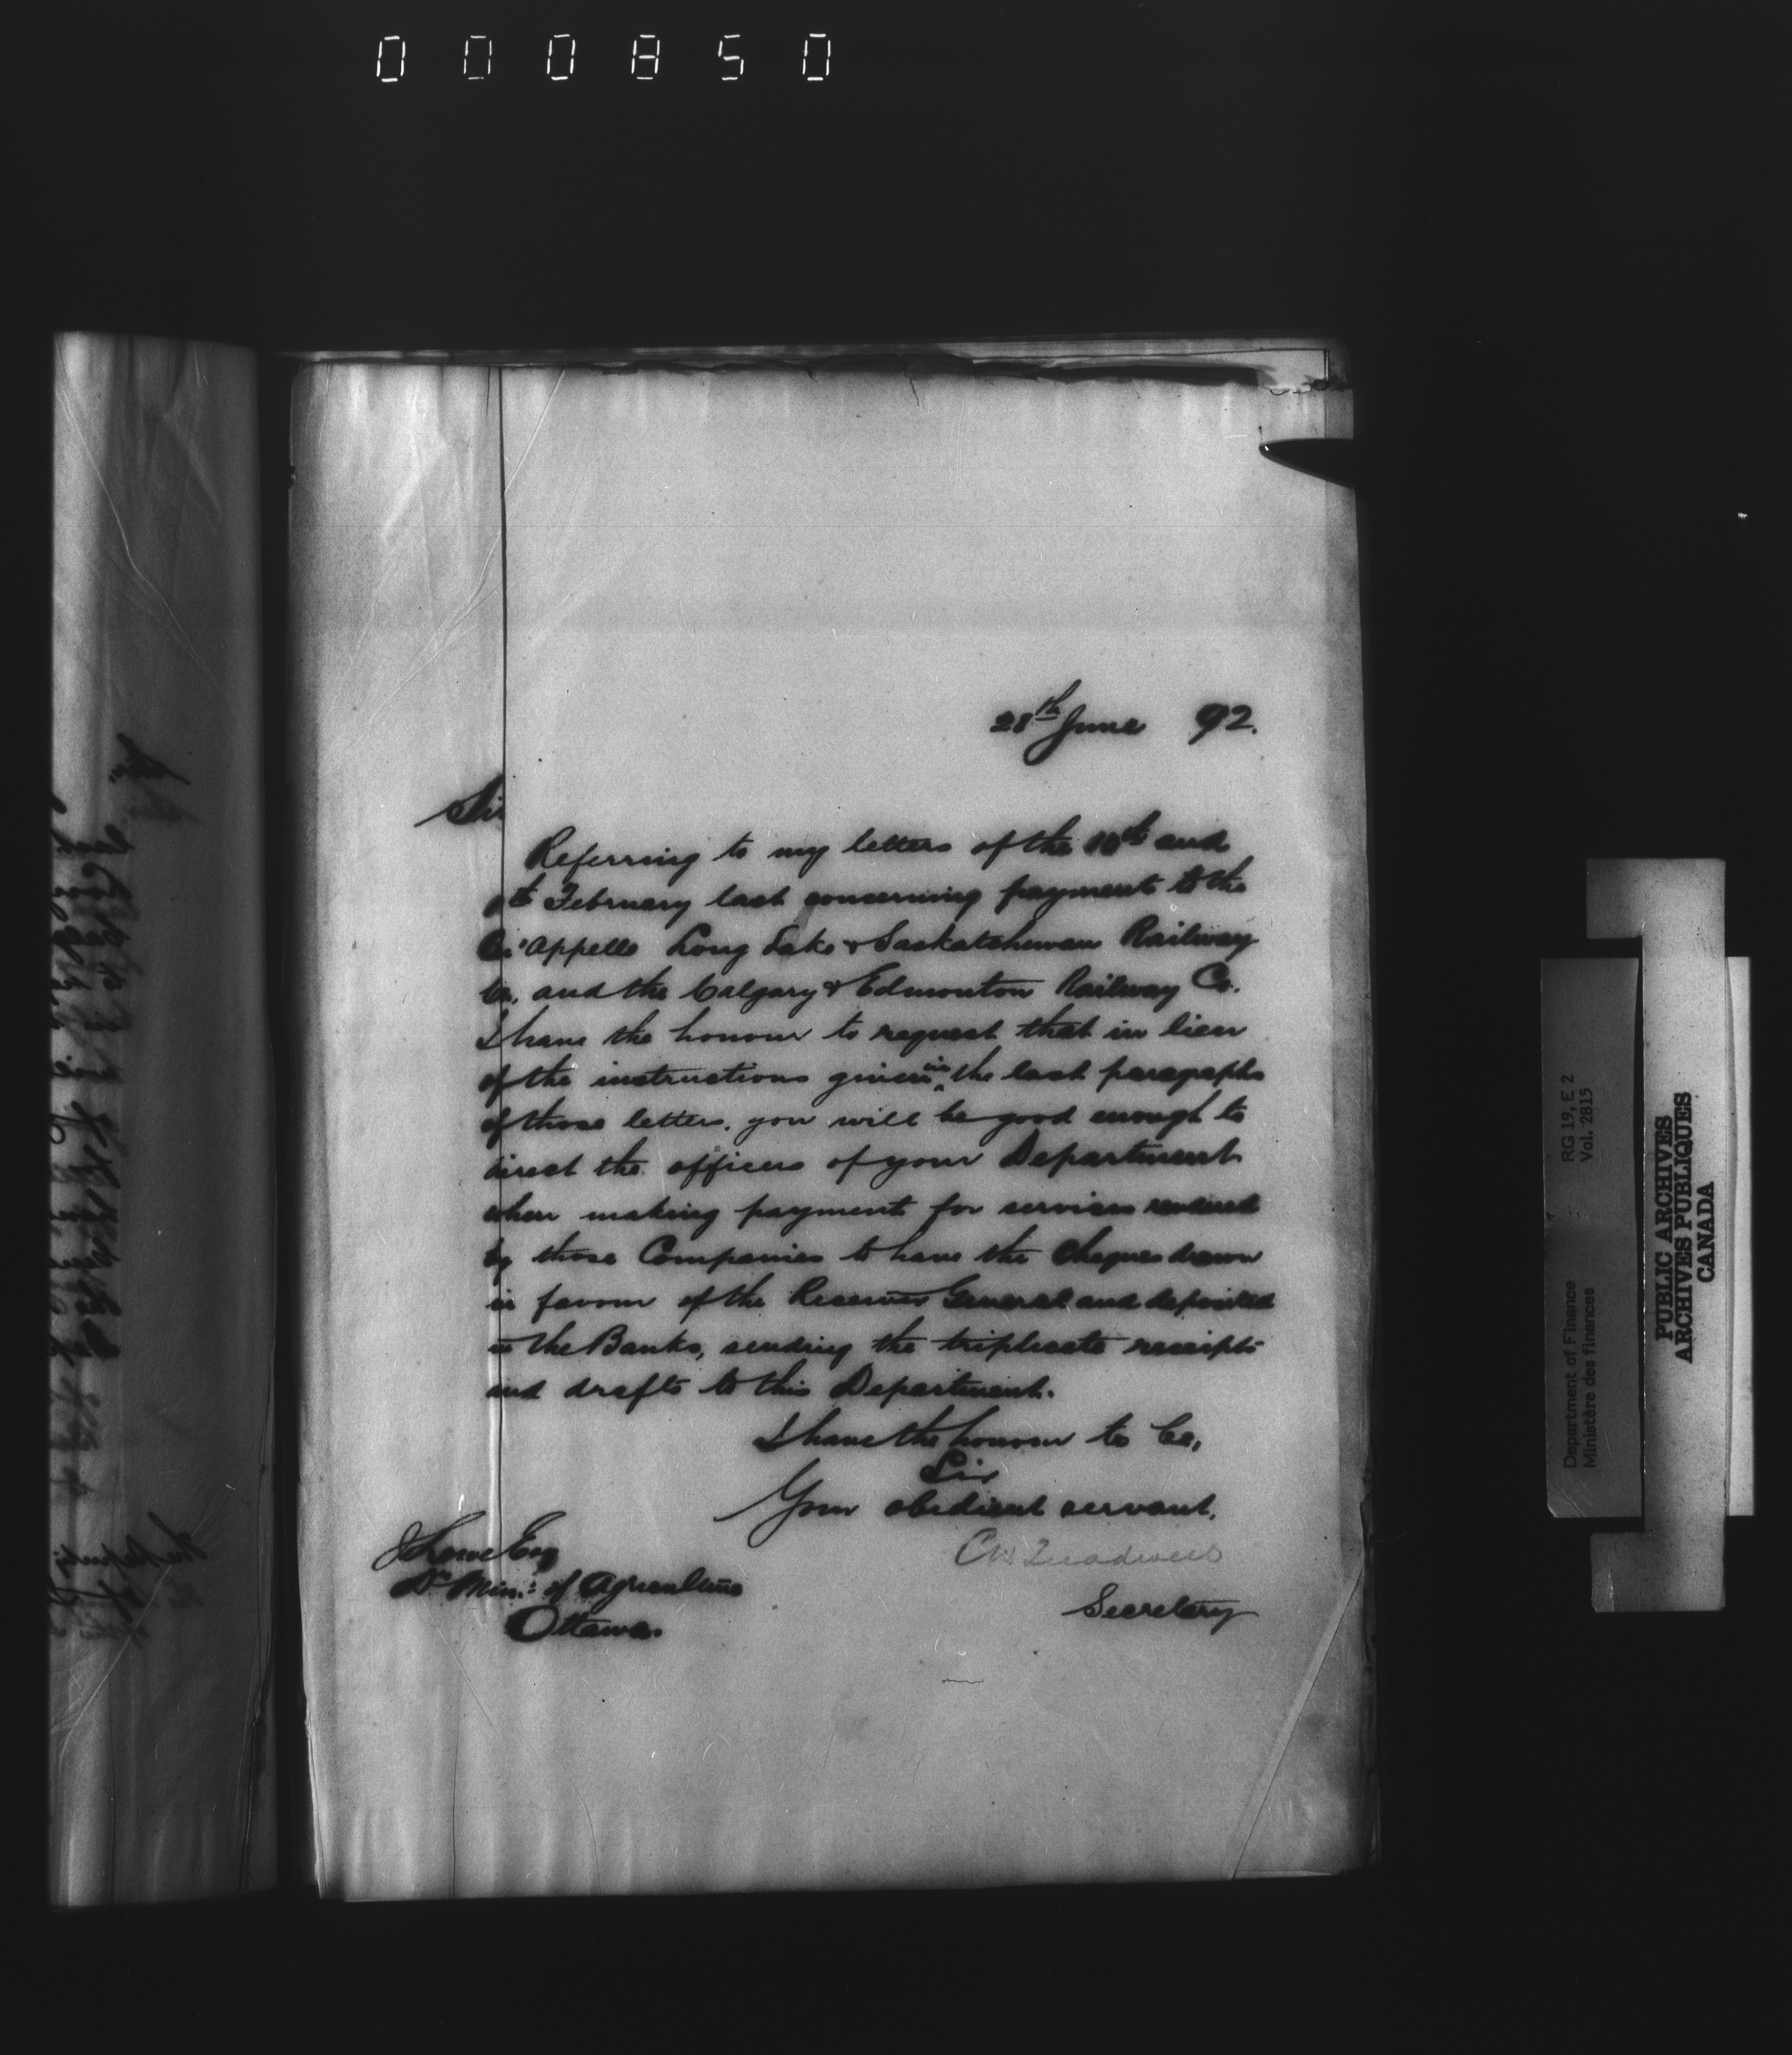 000850
28th June 92.
Sir
Referring to my letters of the 10th and
th February last concerning payments to the
Qu'Appelle Long Lake & Saskatchewan Railway
Co. and the Calgary & Edmonton Railway Co.
I have the honour to request that in lieu
of the instructions given in the last paragraphs
of those letters, you will be good enough to
direct the officers of your Department
when making payment for services rendered
by those Companies to have the cheques drawn
in favour of the Receiver General and deposited
in the Banks, sending the triplicate receipts
and drafts to this Department.
I have the honour to be,
Sir
Your obedient servant.
Secretary
J Lowe Esq
Dy Min: of Agriculture
Ottawa.
RG 19, E 2
Vol. 2815
Department of Finance
Ministère des finances
PUBLIC ARCHIVES
ARCHIVES PUBLIQUES
CANADA